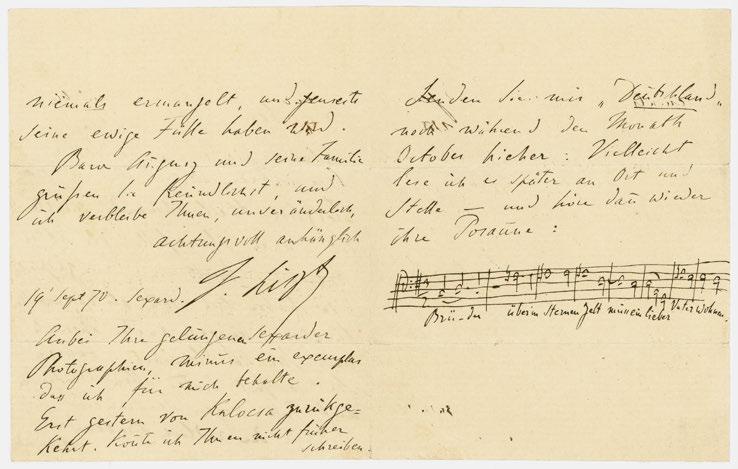 niemals ermangelt, und jenseits
seine ewige Fülle haben wird.
Baron Augusz und seine Familie
grüßen Sie freundlichst, und
ich verbleibe Ihnen, unveränderlich,
achtungsvoll anhänglich
F. Liszt
19t Sept 70. Sexard.
Anbei Ihre gelungenen Sexarder
Photographien, minus ein exemplar
das ich für mich behalte.
Erst gestern von Kalocsa zurückge=
kehrt. Konte ich Ihnen nicht früher
schreiben.
Senden Sie mir „Deutschland"
noch während den Monath
October hieher: Vielleicht
lese ich es später an Ort und
Stelle — und höre dañ wieder
ihre Posaune:
Brü-der überm Sternen Zelt muss ein lieber Vater wohnen.